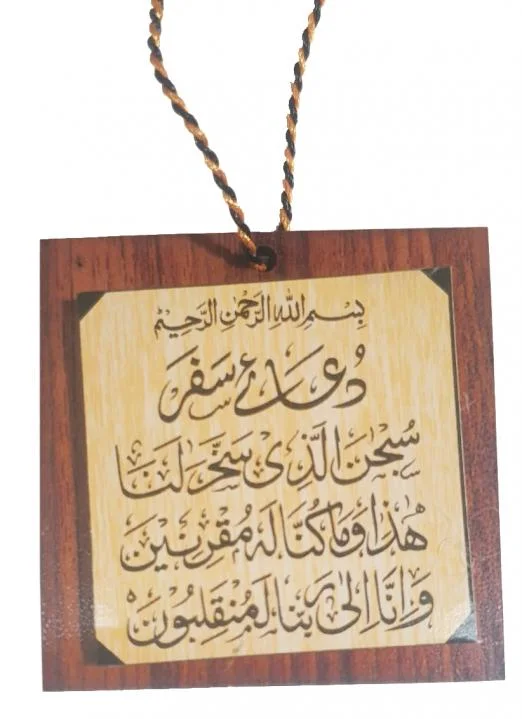 بِسْمِ اللهِ الرَّحْمٰنِ الرَّحِيْمِ
دُعائے سَفَر
سُبْحٰنَ الَّذِیْ سَخَّرَ لَنَا
هٰذَا وَمَا كُنَّا لَهٗ مُقْرِنِیْنَ
وَاِنَّاۤ اِلٰی رَبِّنَا لَمُنْقَلِبُوْنَ